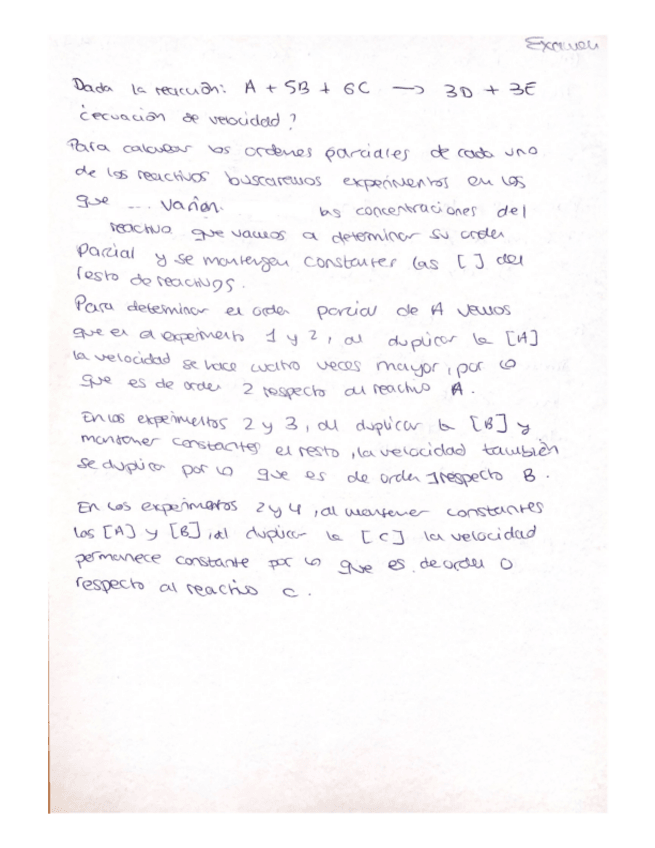 Examen
Dada la reacción: A + 5B + 6C → 3D + 3E
¿ecuación de velocidad?
Para calcular los ordenes parciales de cada uno
de los reactivos buscaremos experimentos en los
que ... varían. las concentraciones del
reactivo que vamos a determinar su orden
Parcial y se mantengan constantes las [ ] del
resto de reactivos.
Para determinar el orden parcial de A vemos
que en el experimento 1 y 2, al duplicar la [A]
la velocidad se hace cuatro veces mayor, por lo
que es de orden 2 respecto al reactivo A.
En los experimentos 2 y 3, al duplicar la [B] y
mantener constantes el resto, la velocidad también
se duplica por lo que es de orden 1 respecto B.
En los experimentos 2 y 4, al mantener constantes
las [A] y [B], al duplicar la [C] la velocidad
permanece constante por lo que es de orden 0
respecto al reactivo C.